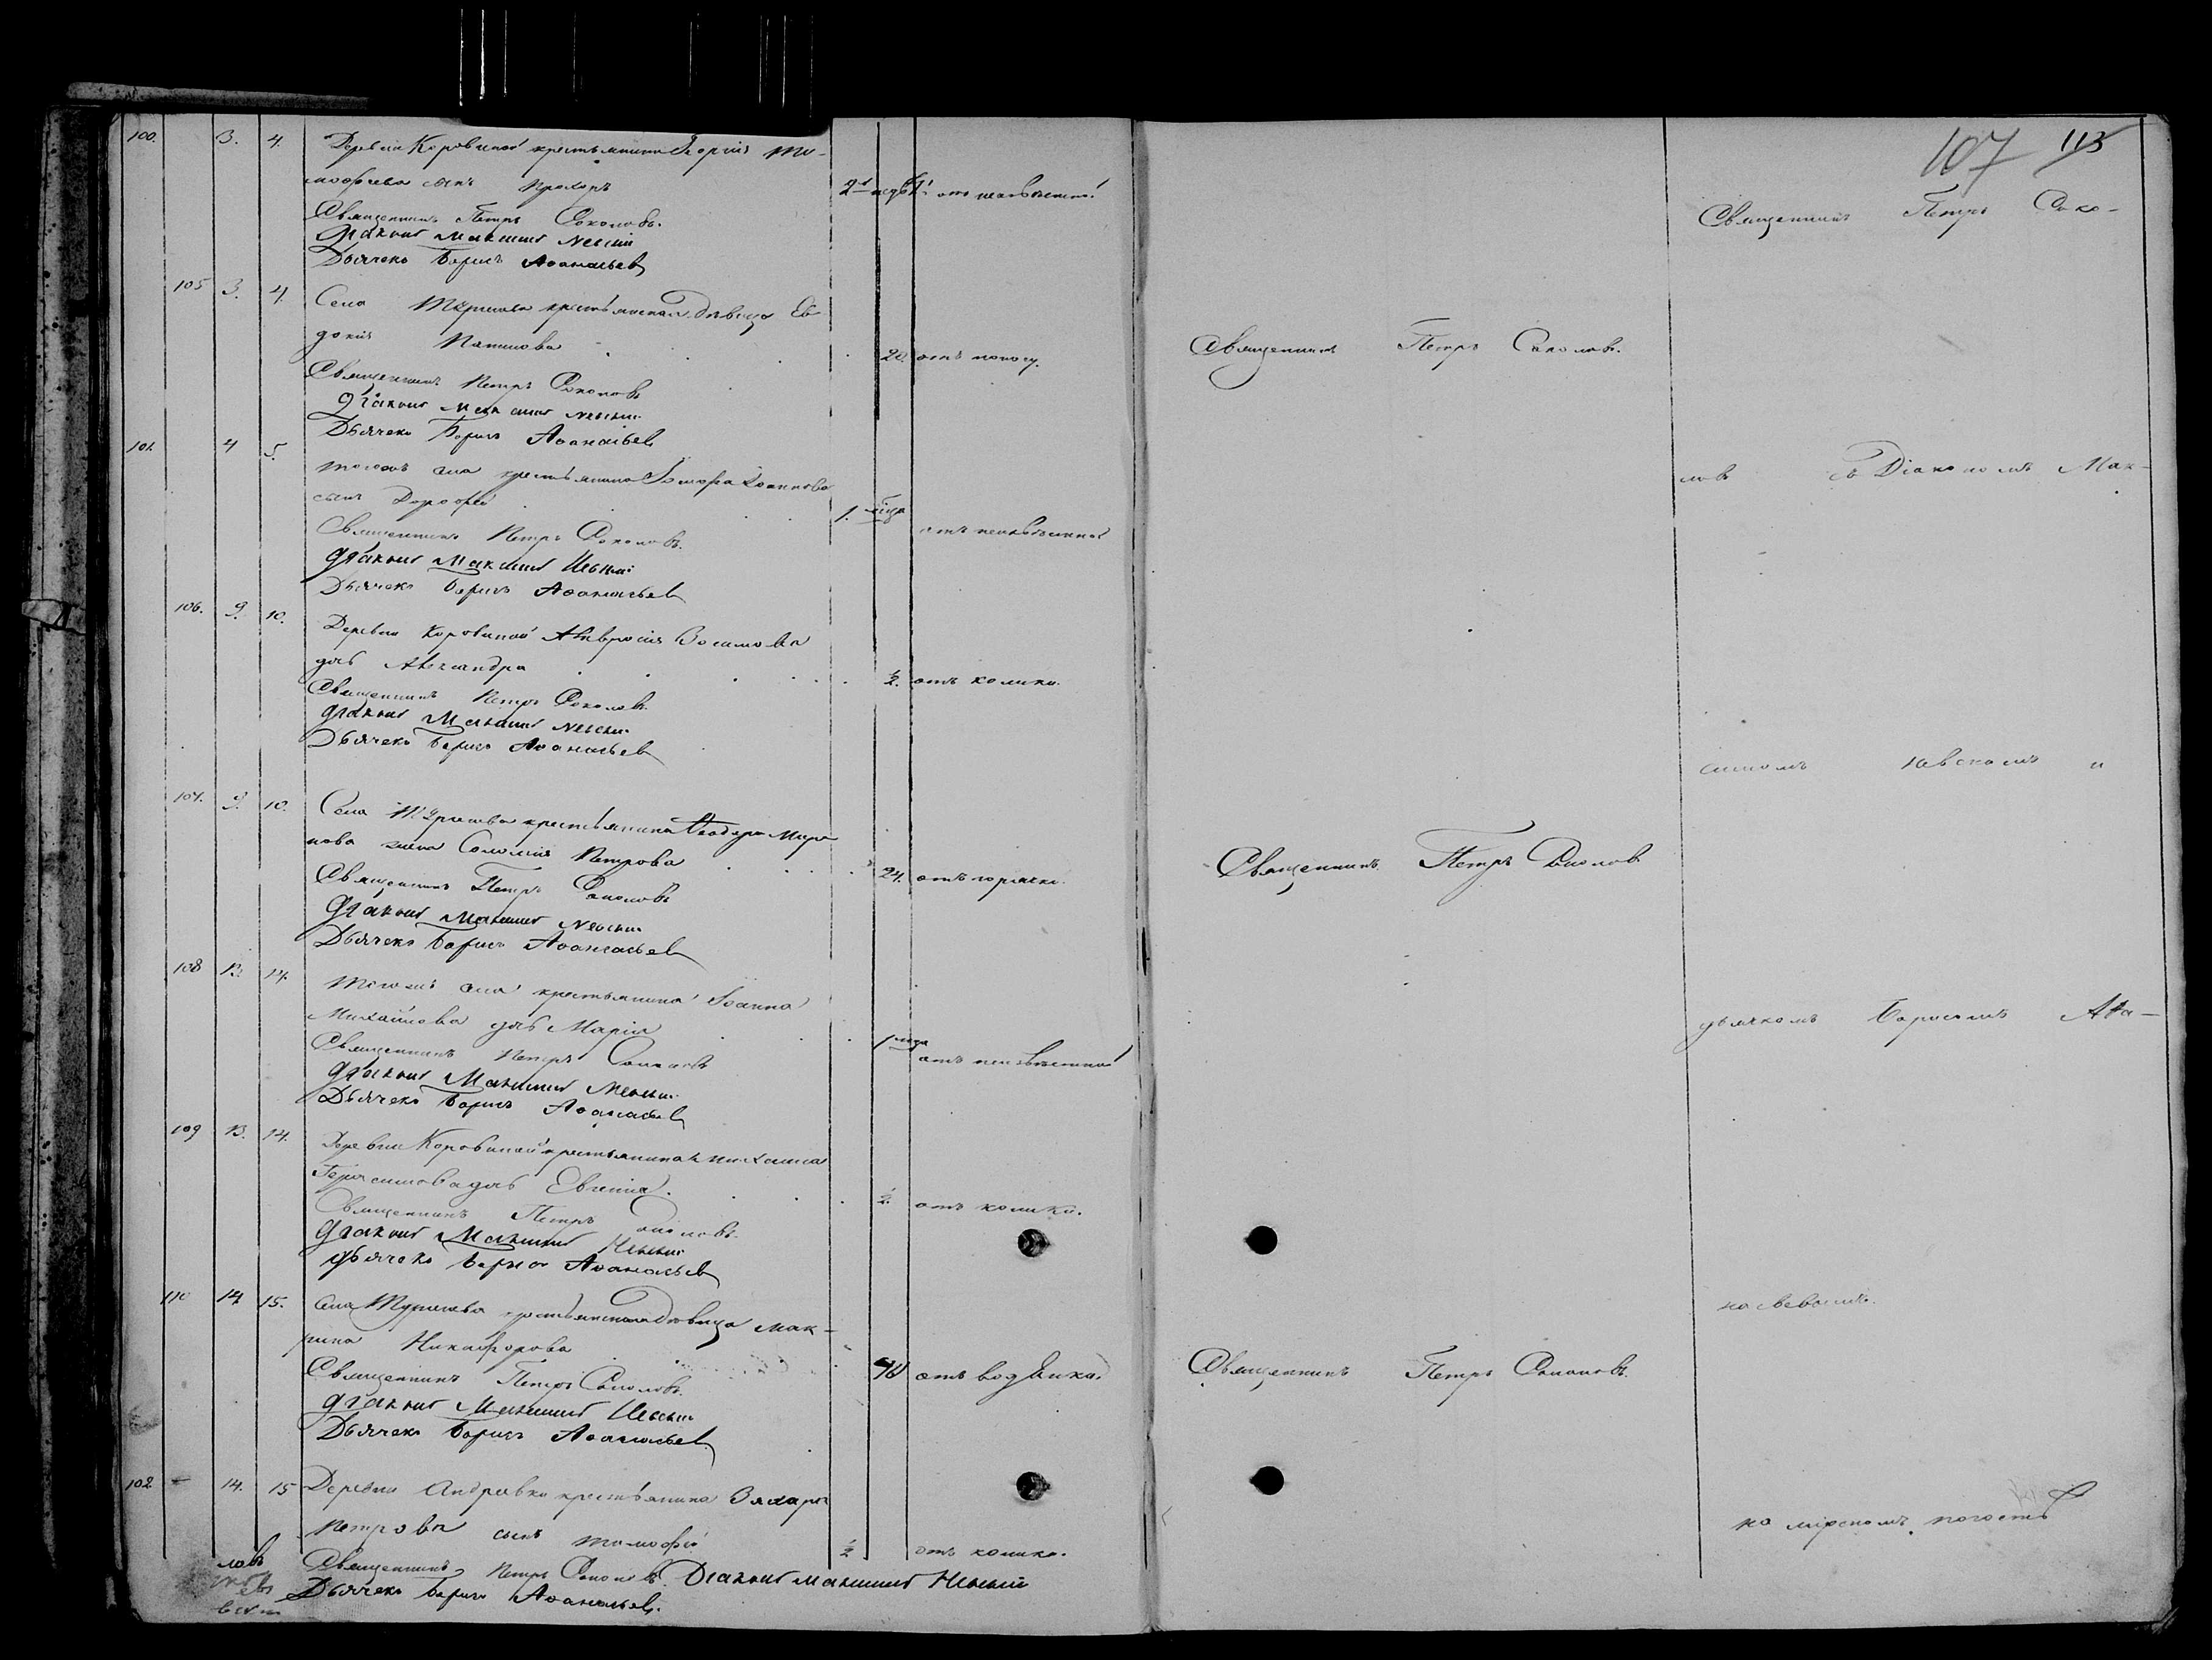 107 113
100. 3. 4. Деревни Коровиной крестьянина Георгія Ти-
моѳеева сынъ Прохоръ 2 недѣл. отъ неизвѣстной
Священникъ Петръ Соколовъ.
Діаконъ Максимъ Невскій
Дьячекъ Борисъ Аѳанасьевъ
Священникъ Петръ Соко-
105 3. 4. Села крестьянская дѣвица Ев-
докія 20. отъ поносу.
Священникъ Петръ Соколовъ
Діаконъ Максимъ Невскій
Дьячекъ Борисъ Аѳанасьевъ
Священникъ Петръ Соколовъ.
101. 4 5. Тогожъ села крестьянина Іоаннова
сынъ Дороѳей 1. мѣсяца отъ неизвѣстной
Священникъ Петръ Соколовъ.
Діаконъ Максимъ Невскій
Дьячекъ Борисъ Аѳанасьевъ
ловъ съ Діакономъ Мак-
106. 9. 10. Деревни Коровиной Амвросія
дочь Александра ½. отъ колики.
Священникъ Петръ Соколовъ.
Діаконъ Максимъ Невскій
Дьячекъ Борисъ Аѳанасьевъ
симомъ Невскомъ и
107. 9. 10. Села крестьянина Ѳеодора Миро-
нова жена Соломія Петрова 24. отъ горячки.
Священникъ Петръ Соколовъ
Діаконъ Максимъ Невскій
Дьячекъ Борисъ Аѳанасьевъ
Священникъ Петръ Соколовъ
108 13. 14. Тогожъ села крестьянина Іоанна
Михайлова дочь Марія 1 мѣсяца отъ неизвѣстной
Священникъ Петръ Соколовъ
Діаконъ Максимъ Невскій
Дьячекъ Борисъ Аѳанасьевъ
дьячкомъ Борисомъ Аѳа-
109 13. 14. Деревни Коровиной крестьянина Михаила
Герасимова дочь Евгенія. ½. отъ колики.
Священникъ Петръ Соколовъ.
Діаконъ Максимъ Невскій
Дьячекъ Борисъ Аѳанасьевъ
насьевымъ.
110 14 15. Села крестьянская дѣвица Мак-
рина Никифорова отъ водянки
Священникъ Петръ Соколовъ.
Діаконъ Максимъ Невскій
Дьячекъ Борисъ Аѳанасьевъ
Священникъ Петръ Соколовъ.
102 14. 15 Деревни Андреевки крестьянина Захара
Петрова сынъ Тимоѳей ½ отъ колики.
Священникъ Петръ Соколовъ. Діаконъ Максимъ Невскій
Дьячекъ Борисъ Аѳанасьевъ.
на мірскомъ погостѣ